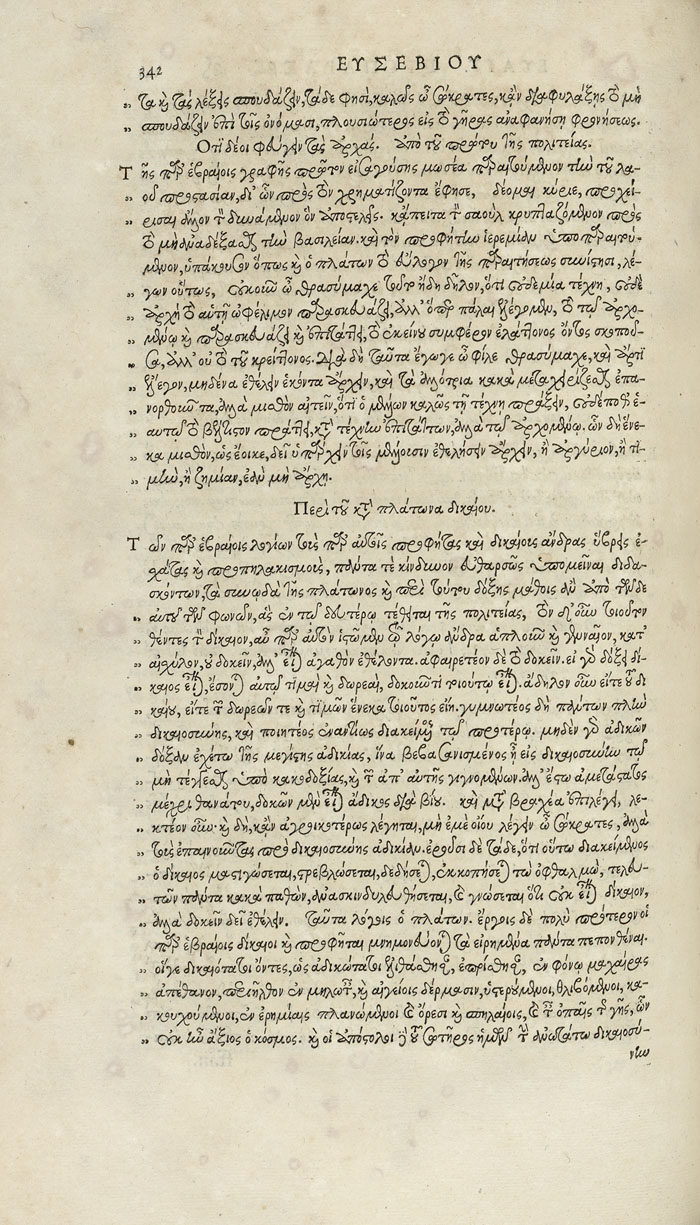 342
ΕΥΣΕΒΙΟΥ
„ τα καὶ τὰς λέξεις σπουδάζειν, τάδε φησὶ, καλῶς ὦ σώκρατες, κἂν διαφυλάξῃς τὸ μὴ
„ σπουδάζειν ἐπὶ τοῖς ὀνόμασι, πλουσιώτερος εἰς τὸ γῆρας ἀναφανήσῃ φρονήσεως.
Ὅτι δέοι φεύγειν τὰς ἀρχάς. ἀπὸ τοῦ πρώτου τῆς πολιτείας.
Τῆς παρ' ἑβραίοις γραφῆς πρῶτον εἰσαγούσης μωσέα παραιτούμενον τὴν τοῦ λα-
„ οῦ προστασίαν, δι' ὧν πρὸς τὸν χρηματίζοντα ἔφησε, δέομαι κύριε, προχεί-
„ ρισαι ἄλλον τὸν δυνάμενον ὃν ἀποστελεῖς. κἄπειτα τὸν σαοὺλ κρυπταζόμενον πρὸς
„ τὸ μὴ δέξασθαι τὴν βασιλείαν. καὶ τὸν προφήτην ἱερεμίαν ὑποπαραιτού-
„ μενον, ὑπάκουσον ὅπως καὶ ὁ πλάτων τὸ εὔλογον τῆς παραιτήσεως συνίστησι, λέ-
„ γων οὕτως, οὐκοῦν ὦ θρασύμαχε τοῦτο ἤδη δῆλον, ὅτι οὐδεμία τέχνη, οὐδὲ
„ ἀρχὴ τὸ αὑτῇ ὠφέλιμον παρασκευάζει, ἀλλ' ὅπερ πάλαι ἐλέγομεν, τὸ τῷ ἀρχο-
„ μένῳ καὶ παρασκευάζει καὶ ἐπιτάττει, τὸ ἐκείνου συμφέρον ἐλάττονος ὄντος σκοποῦ-
„ σα, ἀλλ' οὐ τὸ τοῦ κρείττονος. διὰ δὴ ταῦτα ἔγωγε ὦ φίλε θρασύμαχε, καὶ ἄρτι
„ ἔλεγον, μηδένα ἐθέλειν ἑκόντα ἄρχειν, καὶ τὰ ἀλλότρια κακὰ μεταχειρίζεσθαι ἐπα-
„ νορθοῦντα, ἀλλὰ μισθὸν αἰτεῖν, ὅτι ὁ μέλλων καλῶς τῇ τέχνῃ πράξειν, οὐδέποτε ἑ-
„ αυτῷ τὸ βέλτιστον πράττει, κατὰ τέχνην ἐπιτάττων, ἀλλὰ τῷ ἀρχομένῳ. ὧν δὴ ἕνε-
„ κα μισθὸν, ὡς ἔοικε, δεῖ ὑπάρχειν τοῖς μέλλουσιν ἐθελήσειν ἄρχειν, ἢ ἀργύριον, ἢ τι-
„ μὴν, ἢ ζημίαν, ἐὰν μὴ ἄρχῃ.
Περὶ τοῦ κατὰ πλάτωνα δικαίου.
Τῶν παρ' ἑβραίοις λογίων τοὺς παρ' αὐτοῖς προφήτας καὶ δικαίους ἄνδρας ὕβρεις ἐ-
„ σχάτας καὶ προπηλακισμοὺς, πάντα τὲ κίνδυνον εὐθαρσῶς ὑπομεῖναι διδα-
„ σκόντων, τὰ συνῳδὰ τῆς πλάτωνος καὶ περὶ τούτου δόξης μάθοις ἂν ἀπὸ τῶνδε
„ αὐτοῦ τῶν φωνῶν, ἃς ἐν τῷ δευτέρῳ τέθειται τῆς πολιτείας, τὸν δ' οὖν τοιοῦτον
„ θέντες τὸν δίκαιον, αὖ παρ' αὐτὸν ἱστῶμεν τῷ λόγῳ ἄνδρα ἁπλοῦν καὶ γενναῖον, κατ'
„ αἰσχύλον, οὐ δοκεῖν, ἀλλ' εἶναι ἀγαθὸν ἐθέλοντα. ἀφαιρετέον δὲ τὸ δοκεῖν. εἰ γὰρ δόξει δί-
„ καιος εἶναι, ἔσονται αὐτῷ τιμαὶ καὶ δωρεαὶ, δοκοῦντι τοιούτῳ εἶναι. ἄδηλον οὖν εἴτε τοῦ δι-
„ καίου, εἴτε τῶν δωρεῶν τε καὶ τιμῶν ἕνεκα τοιοῦτος εἴη. γυμνωτέος δὴ πάντων πλὴν
„ δικαιοσύνης, καὶ ποιητέος ἐναντίως διακείμενος τῷ προτέρῳ. μηδὲν γὰρ ἀδικῶν
„ δόξαν ἐχέτω τῆς μεγίστης ἀδικίας, ἵνα βεβασανισμένος ᾖ εἰς δικαιοσύνην τῷ
„ μὴ τέγγεσθαι ὑπὸ κακοδοξίας, καὶ τῶν ἀπ' αὐτῆς γιγνομένων. ἀλλ' ἔστω ἀμετάστατος
„ μέχρι θανάτου, δοκῶν μὲν εἶναι ἄδικος διὰ βίου. καὶ μετὰ βραχέα ἐπιλέγει, λε-
„ κτέον οὖν. καὶ δὴ, κἂν ἀγροικοτέρως λέγηται, μὴ ἐμὲ οἴου λέγειν ὦ σώκρατες, ἀλλὰ
„ τοὺς ἐπαινοῦντας πρὸ δικαιοσύνης ἀδικίαν. ἐροῦσι δὲ τάδε, ὅτι οὕτω διακείμενος
„ ὁ δίκαιος μαστιγώσεται, στρεβλώσεται, δεδήσεται, ἐκκοπήσεται τὼ ὀφθαλμὼ, τελευ-
„ τῶν πάντα κακὰ παθὼν, ἀνασκινδυλευθήσεται, καὶ γνώσεται ὅτι οὐκ εἶναι δίκαιον,
„ ἀλλὰ δοκεῖν δεῖ ἐθέλειν. Ταῦτα λόγοις ὁ πλάτων. ἔργοις δὲ πολὺ πρότερον οἱ
παρ' ἑβραίοις δίκαιοι καὶ προφῆται μνημονεύονται τὰ εἰρημένα πάντα πεπονθέναι.
„ οἵγε δικαιότατοι ὄντες, ὡς ἀδικώτατοι ἐλιθάσθησαν, ἐπρίσθησαν, ἐν φόνῳ μαχαίρας
„ ἀπέθανον, περιῆλθον ἐν μηλωταῖς, καὶ αἰγείοις δέρμασιν, ὑστερούμενοι, θλιβόμενοι, κα-
„ κουχούμενοι, ἐν ἐρημίαις πλανώμενοι καὶ ὄρεσι καὶ σπηλαίοις, καὶ ταῖς ὀπαῖς τῆς γῆς, ὧν
„ οὐκ ἦν ἄξιος ὁ κόσμος. καὶ οἱ ἀπόστολοι δὲ τοῦ σωτῆρος ἡμῶν τὴν ἀνωτάτω δικαιοσύ-
νην